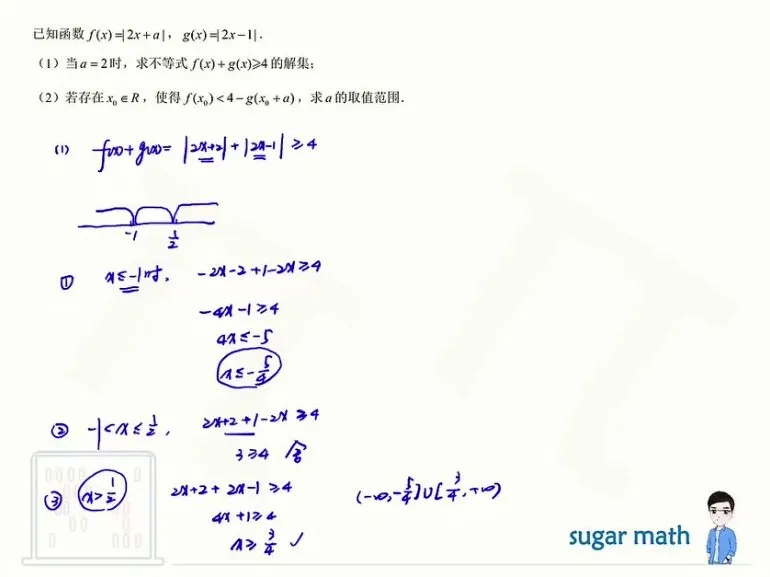 已知函数 f(x)=|2x+a|，g(x)=|2x-1|．
（1）当 a=2 时，求不等式 f(x)+g(x)≥4 的解集；
（2）若存在 x₀∈R，使得 f(x₀)<4-g(x₀+a)，求 a 的取值范围．
(1) f(x)+g(x)= |2x+2|+|2x-1|≥4
-1 1/2
① x≤-1时, -2x-2+1-2x≥4
-4x-1≥4
4x≤-5
x≤-5/4
② -1<x≤1/2, 2x+2+1-2x≥4
3≥4 舍
③ x>1/2 2x+2+2x-1≥4 (-∞,-5/4]∪[3/4,+∞)
4x+1≥4
x≥3/4 ✓
sugar math